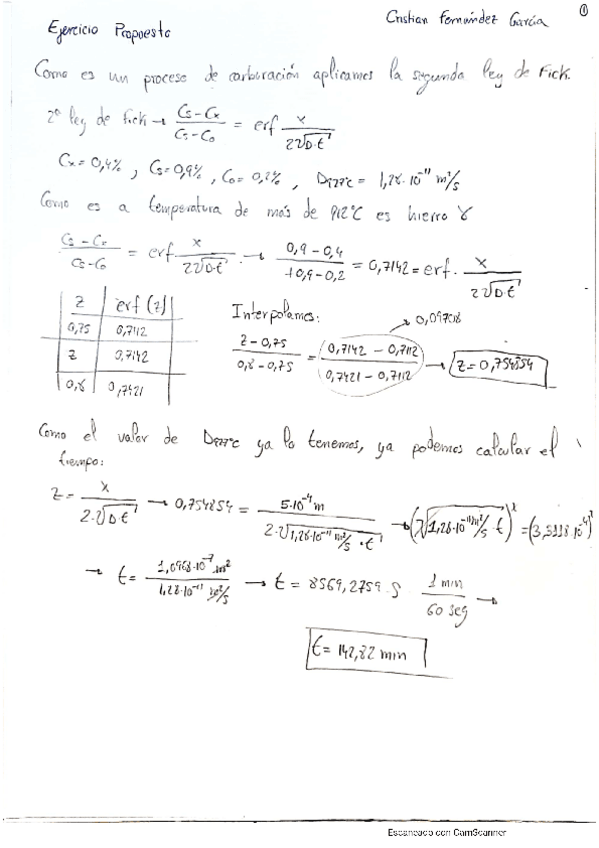 Cristian Fernández García
①
Ejercicio Propuesto
Como es un proceso de carburación aplicamos la segunda ley de Fick.
2ª ley de Fick → (Cs-Cx)/(Cs-C0) = erf x/(2√D·t)
Cx = 0,4% , Cs = 0,9% , C0 = 0,2% , D927ºC = 1,28·10^-11 m²/s
Como es a temperatura de más de 912ºC es hierro γ
(Cs-Cx)/(Cs-C0) = erf x/(2√D·t) → (0,9-0,4)/(0,9-0,2) = 0,7142 = erf · x/(2√D·t)
z | erf (z)
0,75 | 0,7112
z | 0,7142
0,8 | 0,7421
Interpolamos:
(z-0,75)/(0,8-0,75) = (0,7142-0,7112)/(0,7421-0,7112) → z = 0,754854
→ 0,09708
Como el valor de D927ºC ya lo tenemos, ya podemos calcular el
tiempo:
z = x/(2·√D·t) → 0,754854 = 5·10^-4 m/(2·√1,28·10^-11 m²/s · t) → (√1,28·10^-11 m²/s · t)² = (3,3118·10^-4)²
→ t = 1,0968·10^-7 m²/1,28·10^-11 m²/s → t = 8569,2759 s · 1 min/60 seg →
t = 142,82 min
Escaneado con CamScanner